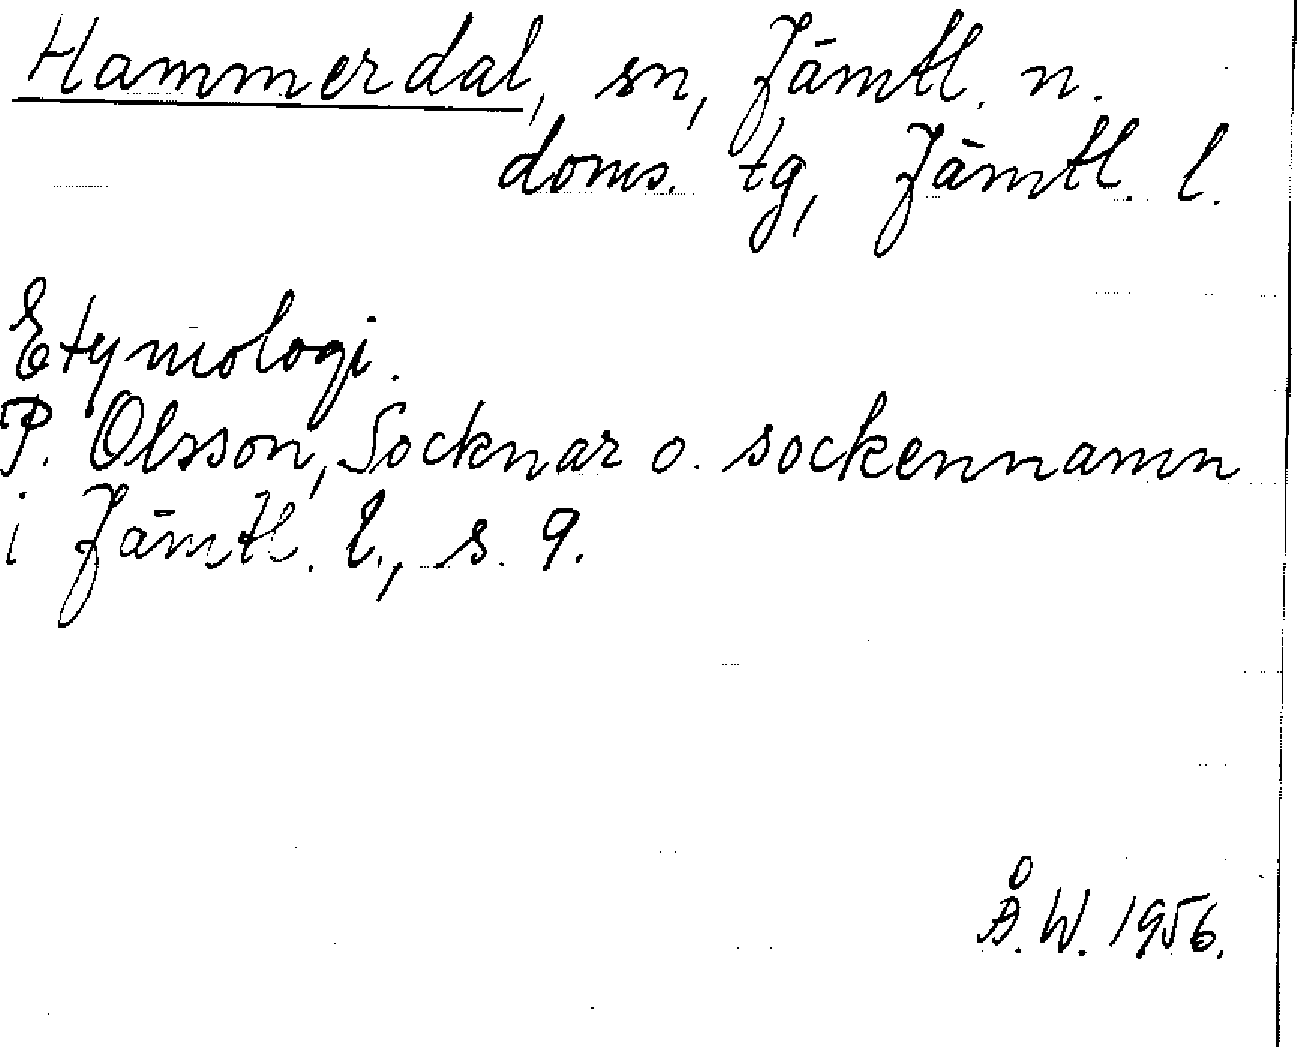 Hammerdal, sn, Jämtl. n.
doms. tg, Jämtl. l.
Etymologi.
P. Olsson, Socknar o. sockennamn
i Jämtl. l., s. 9.
Å.W. 1956.